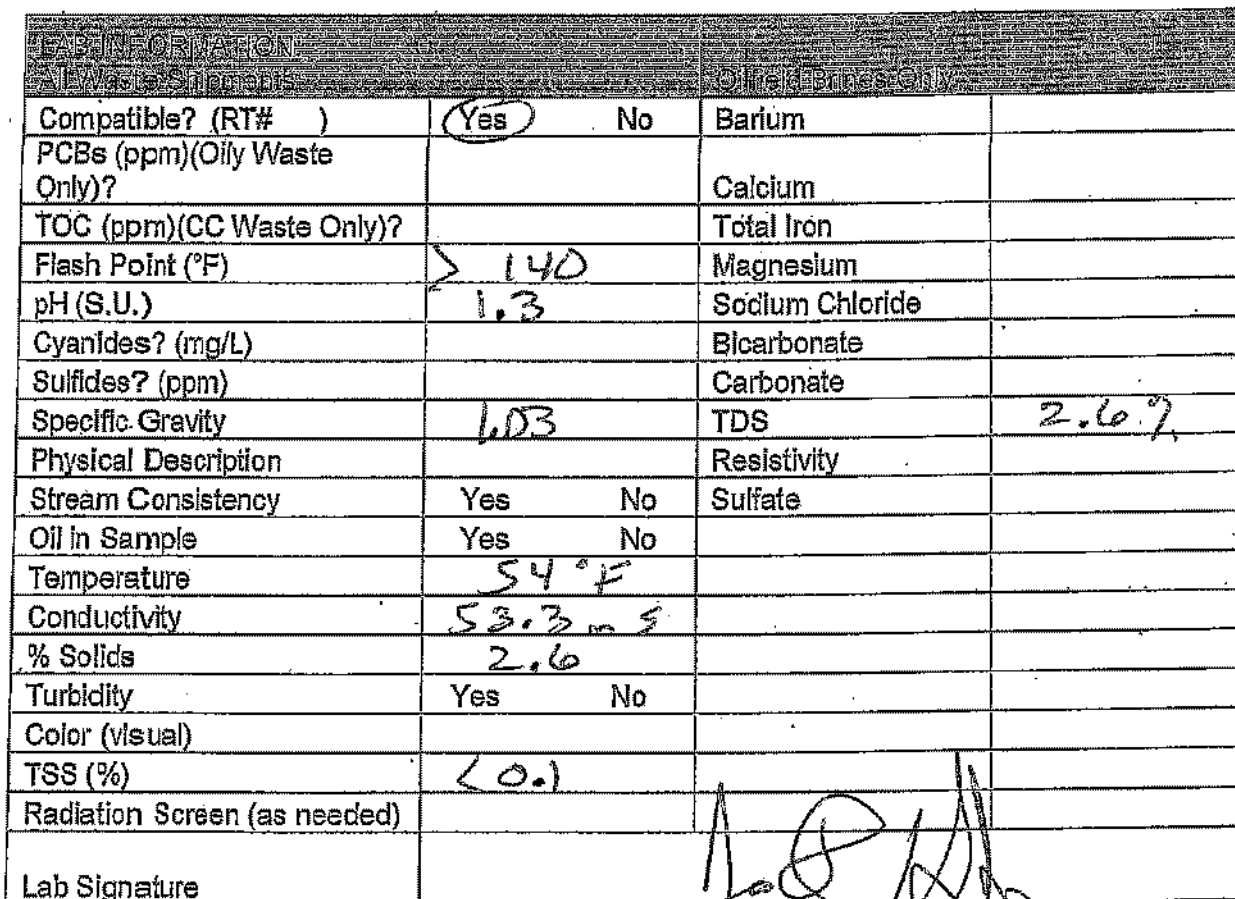 LAB INFORMATION
All Waste Shipments Oilfield Brines Only
Compatible? (RT# ) Yes No Barium
PCBs (ppm)(Oily Waste
Only)? Calcium
TOC (ppm)(CC Waste Only)? Total Iron
Flash Point (°F) > 140 Magnesium
pH (S.U.) 1.3 Sodium Chloride
Cyanides? (mg/L) Bicarbonate
Sulfides? (ppm) Carbonate
Specific Gravity 1.03 TDS 2.6%
Physical Description Resistivity
Stream Consistency Yes No Sulfate
Oil in Sample Yes No
Temperature 54°F
Conductivity 53.3 mS
% Solids 2.6
Turbidity Yes No
Color (visual)
TSS (%) <0.1
Radiation Screen (as needed)
Lab Signature